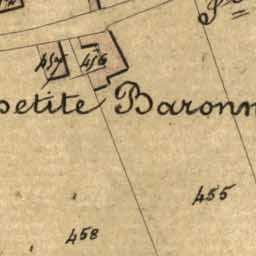 457 456
petite Baronn
455
458